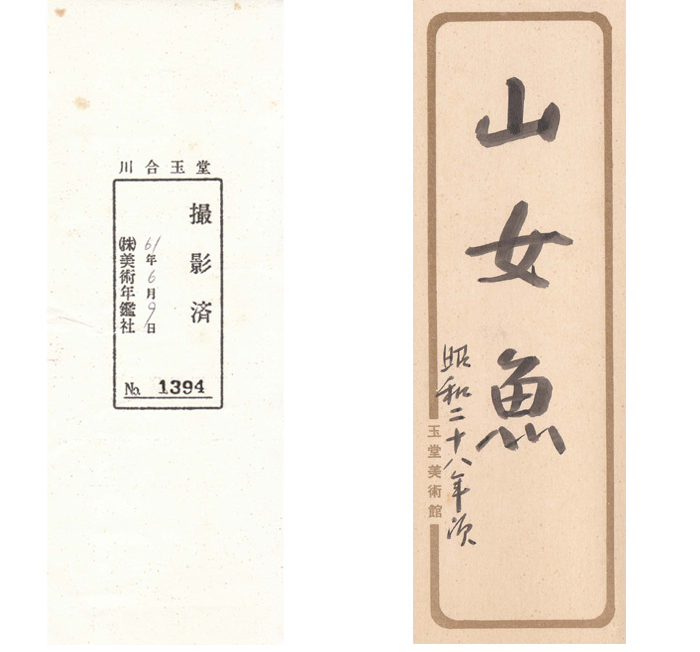 川合玉堂
撮影済
61年6月9日
(株)美術年鑑社
No. 1394
山女魚
昭和二十八年次
玉堂美術館